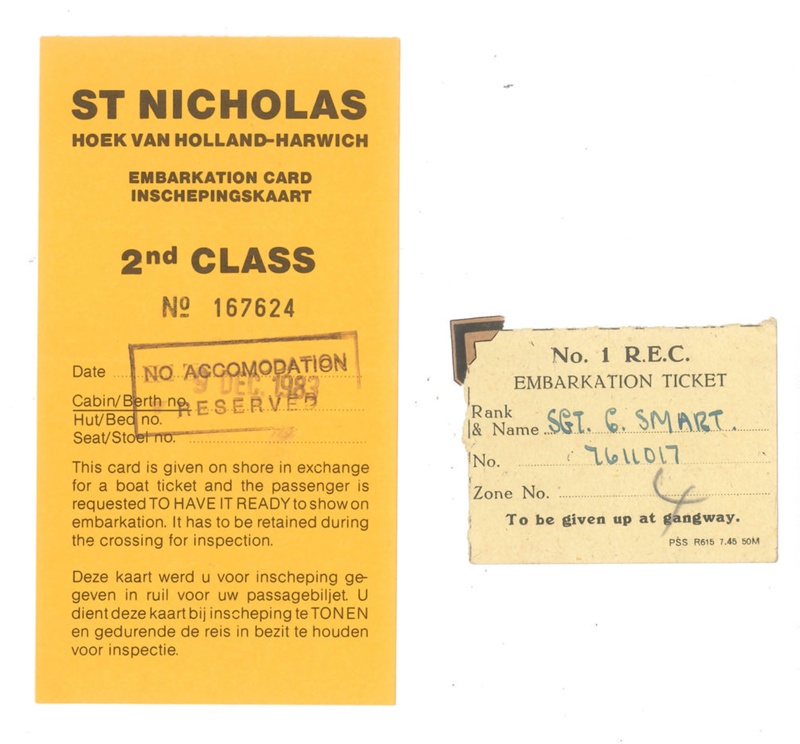 ST NICHOLAS
HOEK VAN HOLLAND-HARWICH
EMBARKATION CARD
INSCHEPINGSKAART
2nd CLASS
Nº 167624
Date
NO ACCOMODATION
9 DEC 1983
RESERVED
Cabin/Berth no.
Hut/Bed no.
Seat/Stoel no.
This card is given on shore in exchange
for a boat ticket and the passenger is
requested TO HAVE IT READY to show on
embarkation. It has to be retained during
the crossing for inspection.
Deze kaart werd u voor inscheping ge-
geven in ruil voor uw passagebiljet. U
dient deze kaart bij inscheping te TONEN
en gedurende de reis in bezit te houden
voor inspectie.
No. 1 R.E.C.
EMBARKATION TICKET
Rank
& Name SGT. G. SMART.
No. 7611017
Zone No. 4
To be given up at gangway.
PSS R615 7.45 50M